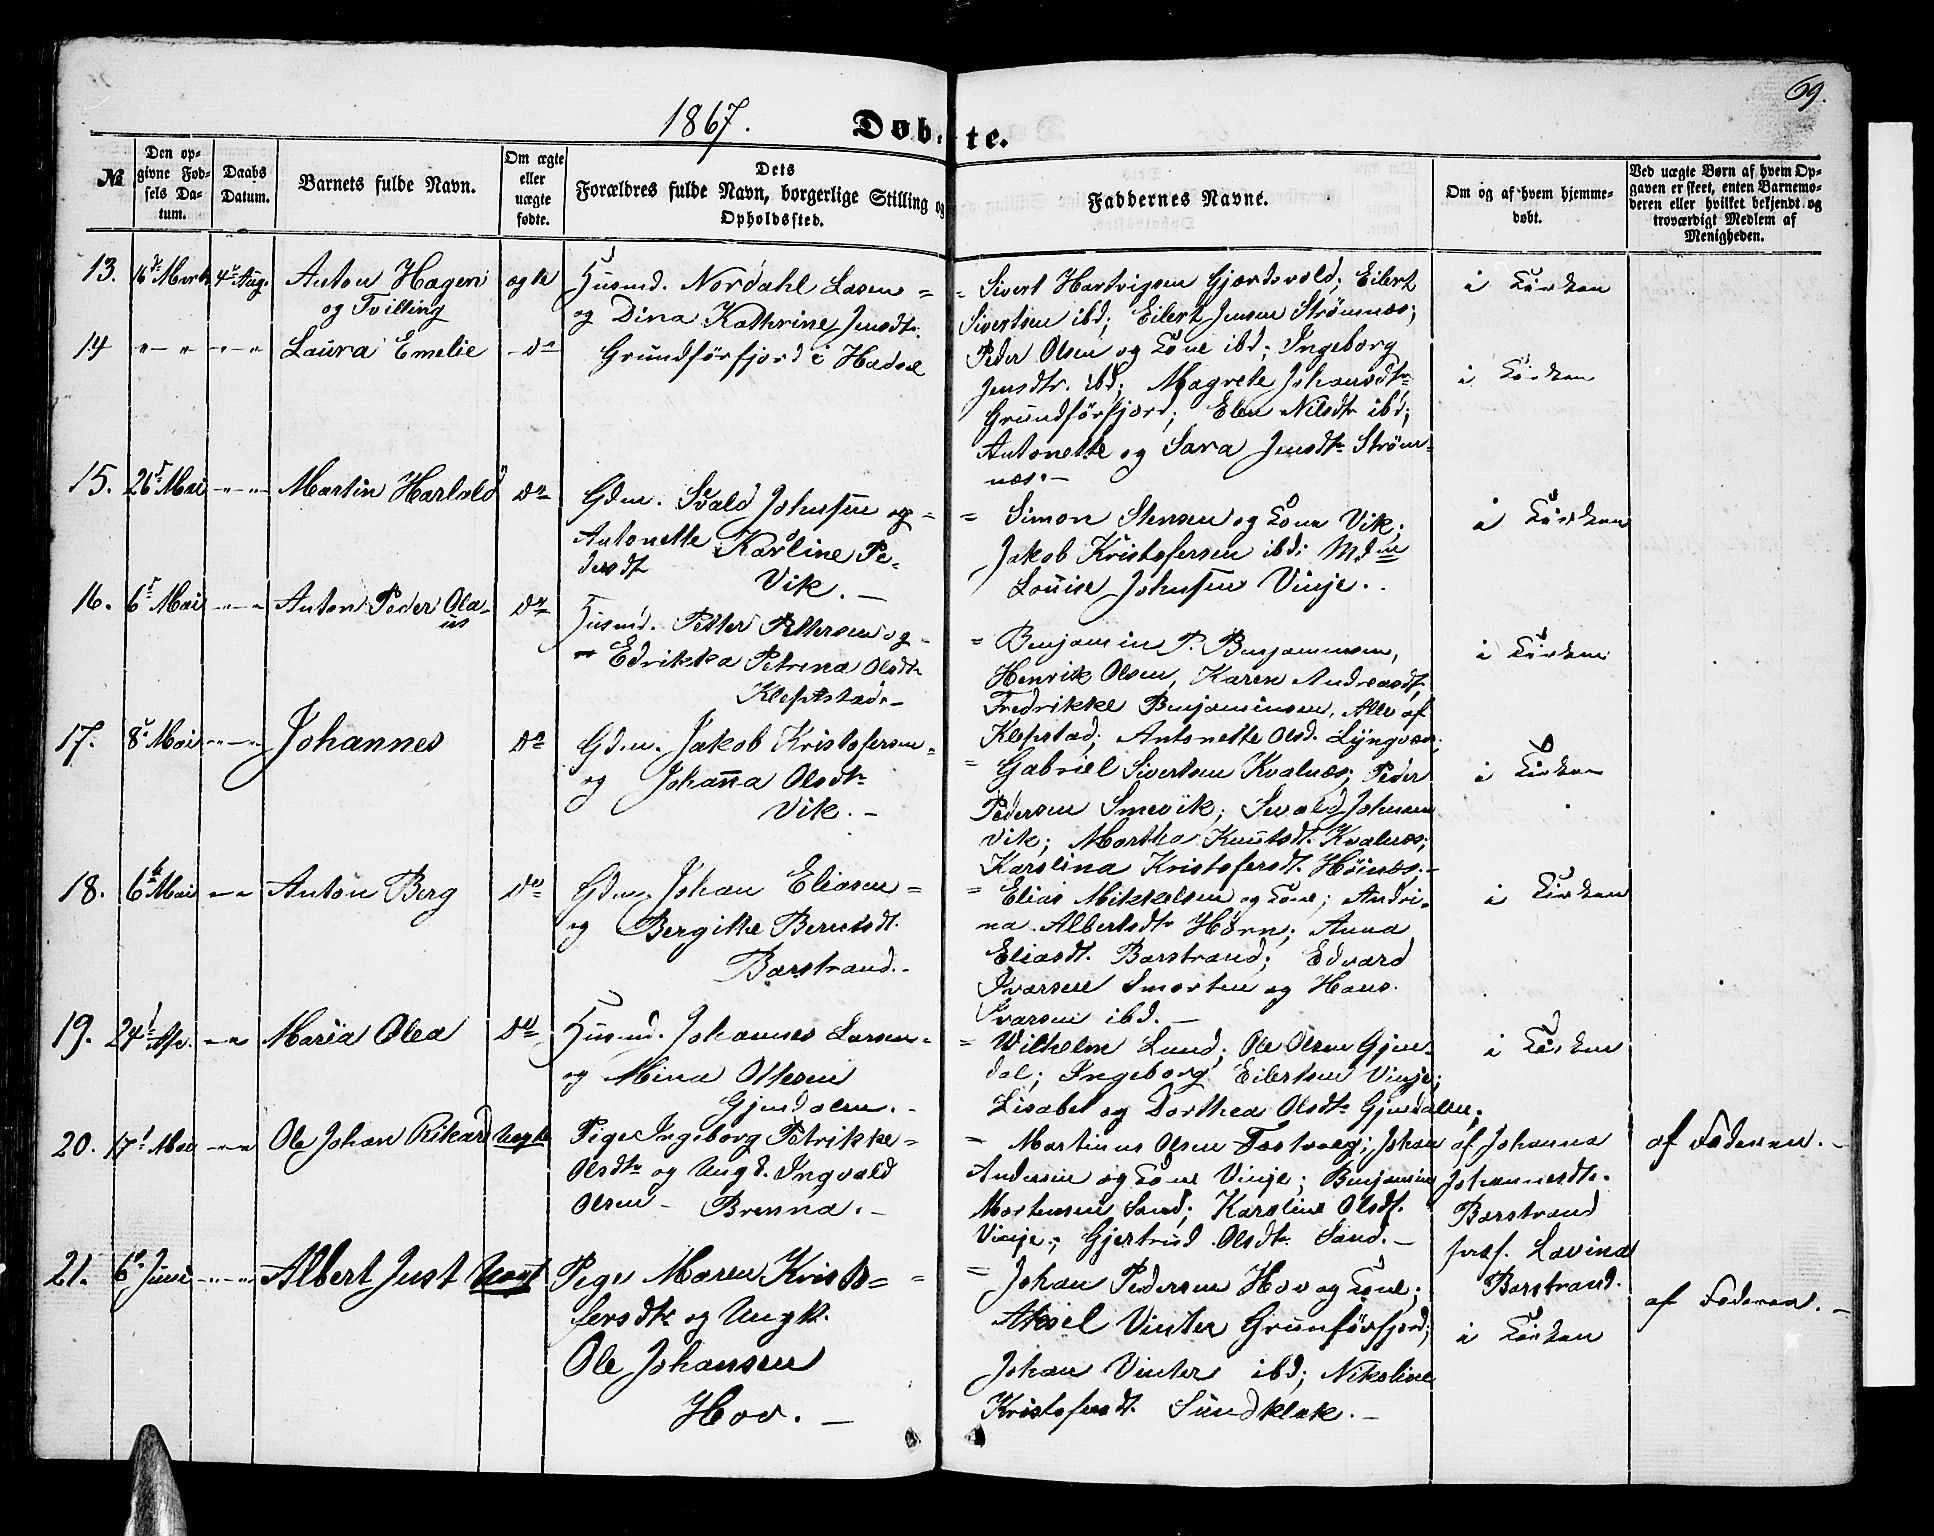 69.
1867.
Døb-te.
№
Den op-
givne Fød-
sels Da-
tum.
Daabs
Datum.
Barnets fulde Navn.
Om ægte
eller
uægte
fødte.
Dets
Forældres fulde Navn, borgerlige Stilling og
Opholdssted.
Faddernes Navne.
Om og af hvem hjemme-
døbt.
Ved uægte Børn af hvem Op-
gaven er skeet, enten Barnemo-
deren eller hvilket bekjendt og
troværdigt Medlem af
Menigheden.
13. 16 Marts 4 Aug. Anton Hagen ægte
og Tvilling
Husmd. Nordahl Lasen
og Dina Kathrine Jensdtr.
Sivert Hartvigsen Gjærdsvold; Eilert
Sivertsen ibd; Eilert Jensen Strømnæs;
i Kirken
14 " " " " Laura Emelie do
Grundförfjord i Hadsel
Peder Olsen og Kone ibd; Ingeborg
Jensdtr. ibd; Magrete Johansdtr
Grundförfjord; Elen Nilsdtr ibd;
Antonette og Sara Jensdtr Strøm-
næs.
i Kirken
15. 26 Mai " " Martin Harlald do
Gdm. Svald Johnsen og
Antonette Karline Pe-
dersdt
Vik.
Simon Stensen og Kone Vik;
Jakob Kristofersen ibd; Mdm
Louise Johnsen Vinje.
i Kirken
16. 6 Mai " " Anton Peder Ola-
us do
Husmd. Petter Pettersen og
Edrikka Petrina Olsdtr
Klepstad.
Benjamin P. Benjaminsen,
Henrik Olsen, Karen Andreasdt,
Fredrikke Benjaminsen, Alle af
Klepstad; Antonette Olsd. Lyngvær;
i Kirken
17. 8 Mai " " Johannes do
Gdm. Jakob Kristofersen
og Johanna Olsdtr
Vik.
Gabriel Sivertsen Kvalnæs; Peder
Pedersen Smevik; Svald Johnsen
Vik; Martha Knutsdt. Kvalnæs;
Karolina Kristofersdt. Höinæs;
i Kirken
18. 6 Mai " " Anton Berg do
Gdm. Johan Eliasen
og Bergitte Berntsdt.
Barstrand.
Elias Mikkelsen og Kone; Andri-
na Albertsdt Hörn; Anna
Eliasdt. Barstrand; Edvard
Ivarsen Smorten og Hans
Ivarsen ibd.
i Kirken
19. 24 Ap. " " Maria Olea do
Husmd. Johannes Larsen
og Mina Ottesen
Gjendalen.
Wilhelm Lund; Ole Olsen Gjen-
dal; Ingeborg Eilertsen Vinje;
Lisabet og Dorthea Olsdtr Gjendalen;
i Kirken
20. 17 Mai " " Ole Johan Rikard Uægte
Pige Ingeborg Petrikke
Olsdtr og Ungk. Ingvald
Olsen Brenna.
Martinus Olsen Fastvaag; Johan
Andersen og Kone Vinje; Benjamin
Mortensen Sand; Karoline Olsdt.
Vinje; Gjertrud Olsdtr Sand.
af Johanna
Johannesdt.
Barstrand
præs. Lavina
Barstrand.
af Faderen.
21. 6 Juni " " Albert Just Uægt
Pige Maren Kristo-
fersdtr og Ungk.
Ole Johansen
Hov.
Johan Pedersen Hov og Kone;
Aksel Vinter Grunförfjord;
Johan Vinter ibd; Nikoline
Kristofersdt. Sundklak.
i Kirken
af Faderen.